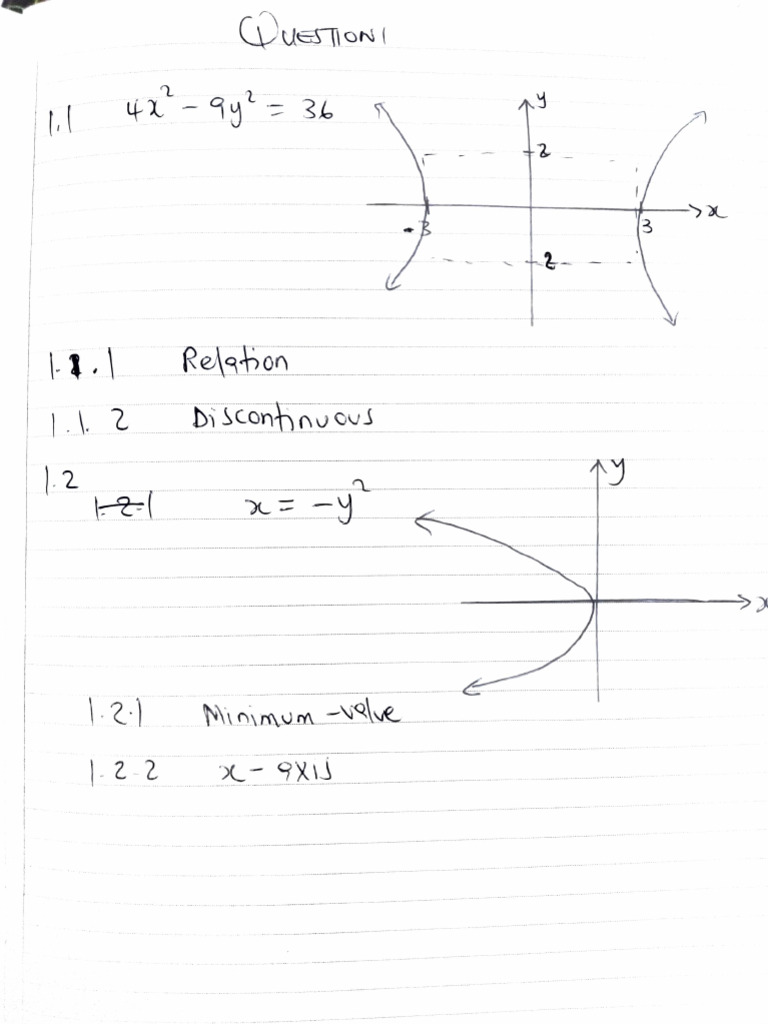 QUESTION 1
1.1 4x² - 9y² = 36
y
2
x
-3
3
2
1.1.1 Relation
1.1.2 Discontinuous
1.2
1.2.1 x = -y²
y
x
1.2.1 Minimum - value
1.2.2 x - axis